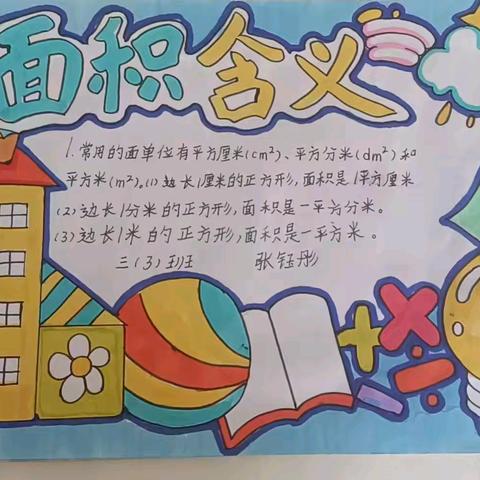 面积含义
1.常用的面单位有平方厘米(cm²)、平方分米(dm²)和
平方米(m²)。(1)边长1厘米的正方形,面积是1平方厘米
(2)边长1分米的正方形,面积是一平方分米。
(3)边长1米的正方形,面积是一平方米。
三(3)班 张钰彤